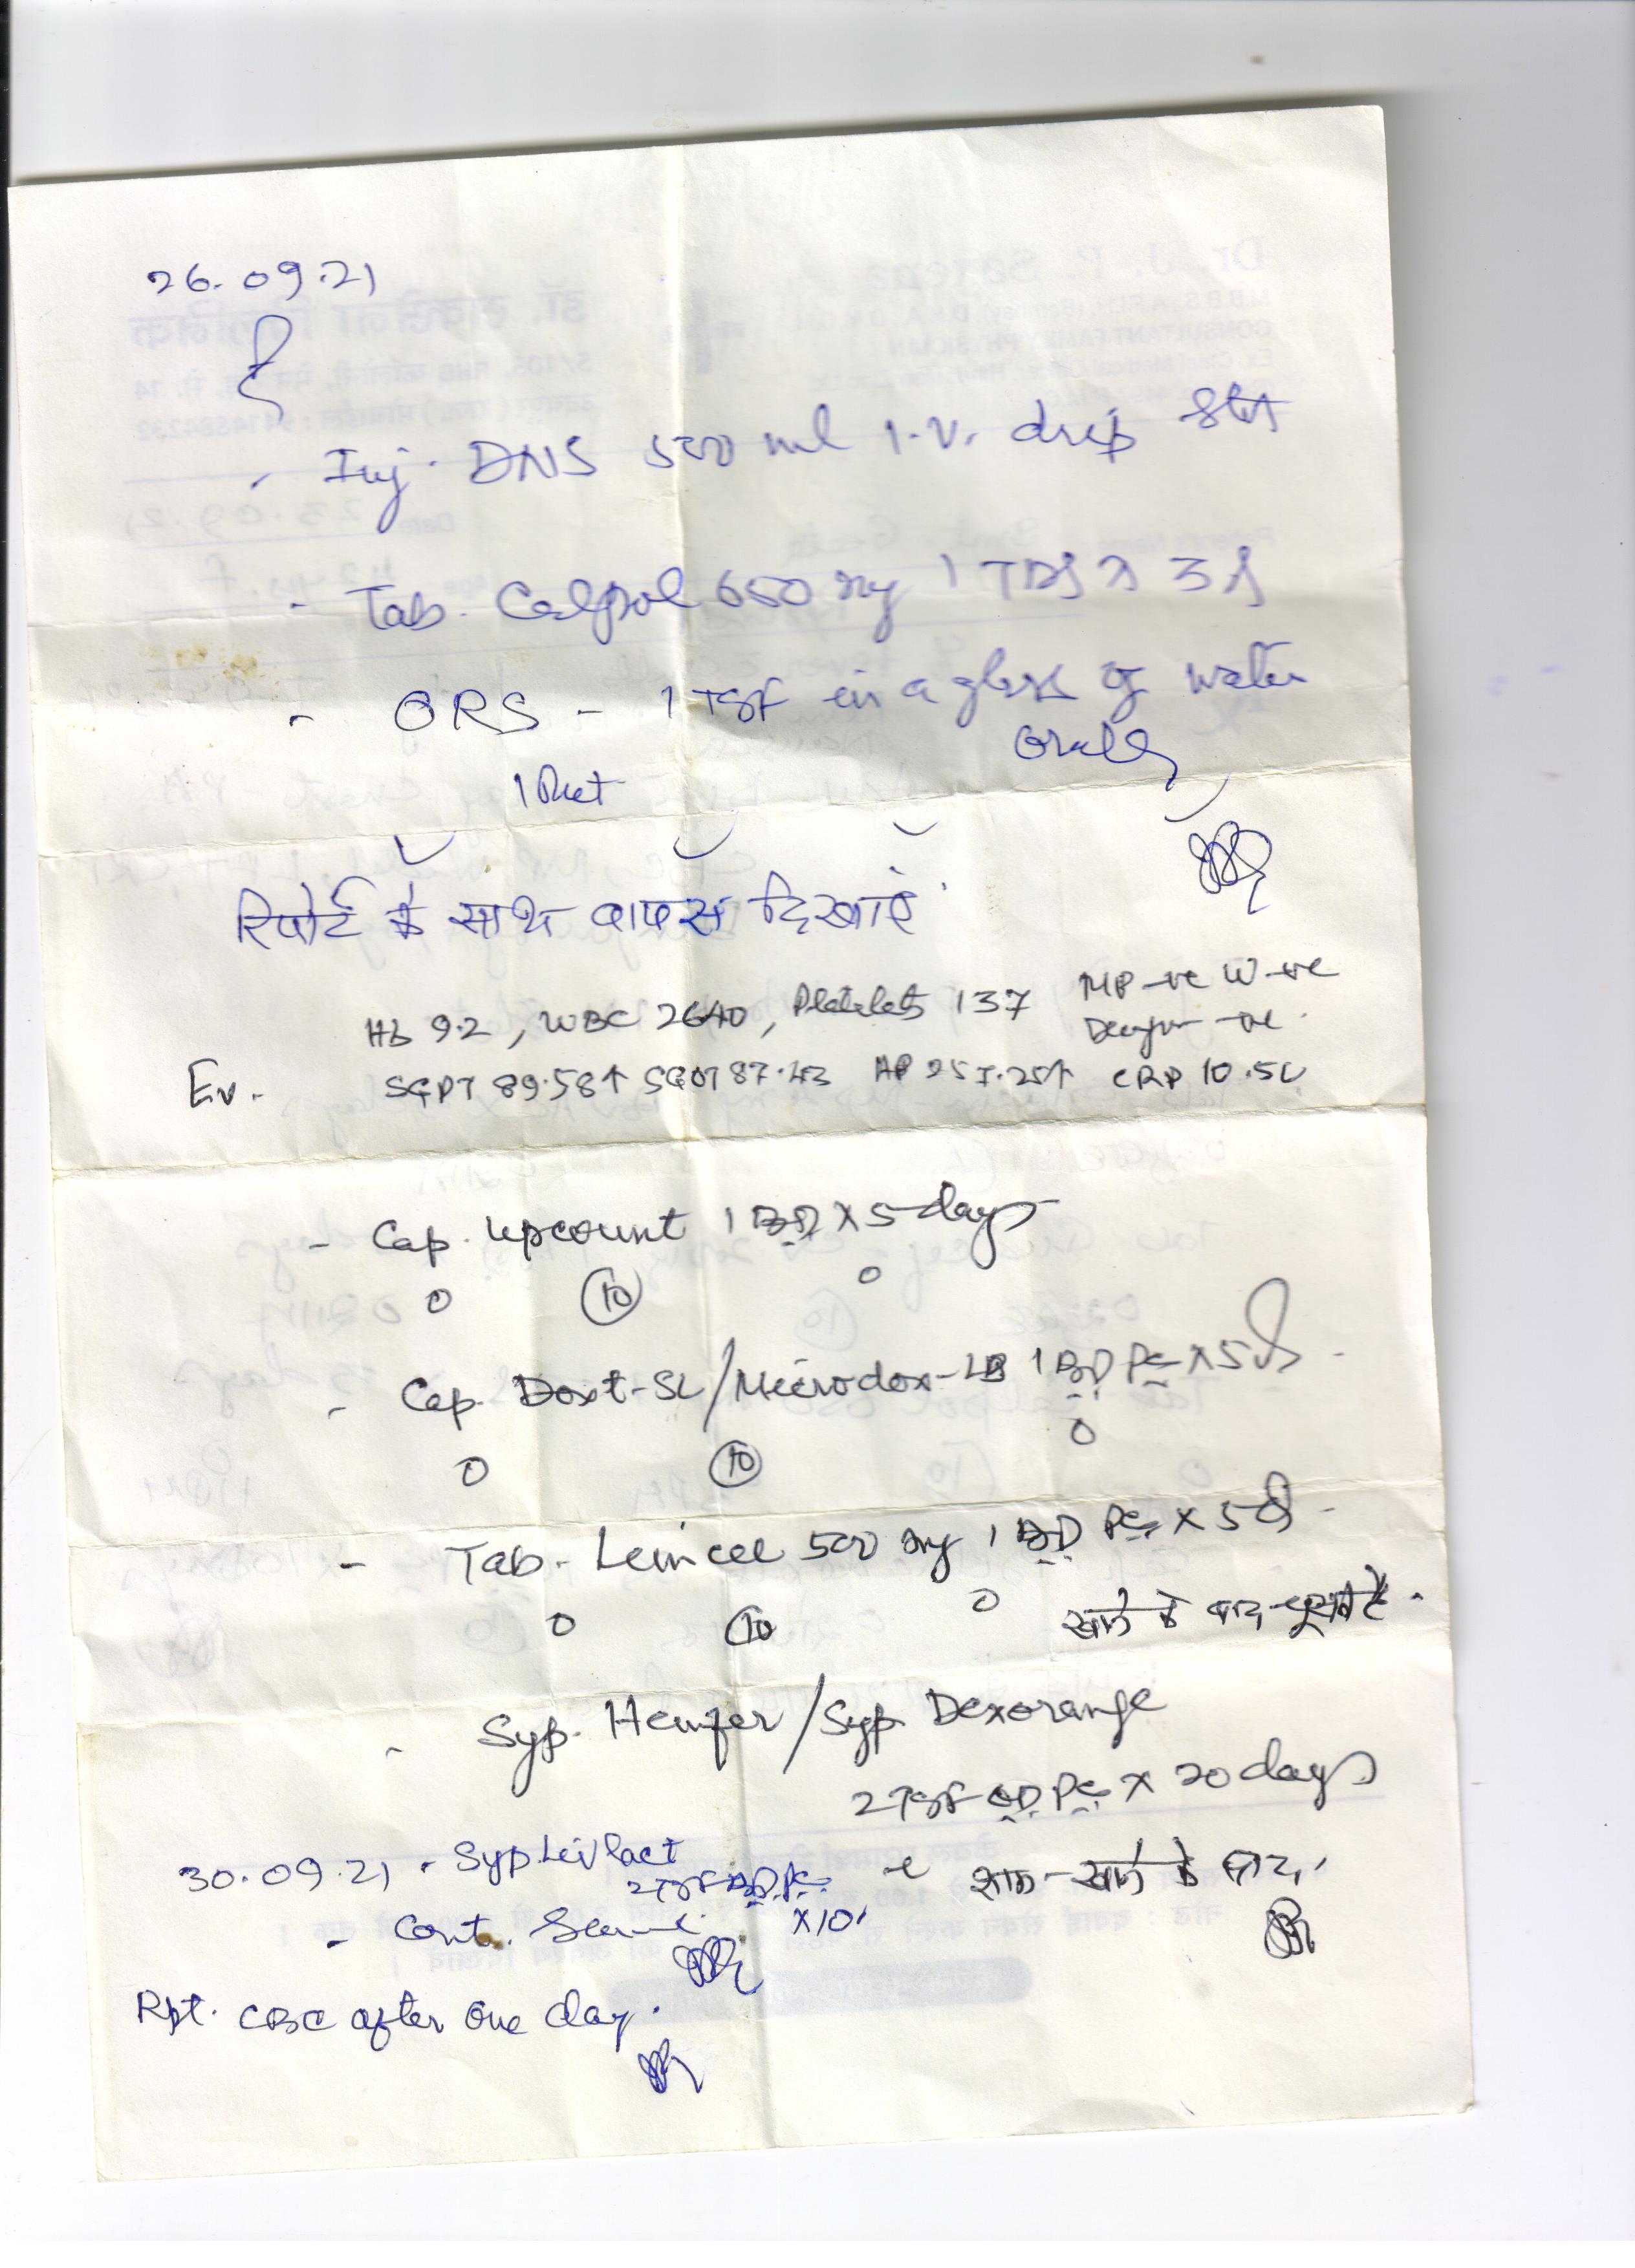 26.09.21
Inj. DNS 500 ml I.V. drip Stat
- Tab. Calpol 650 mg 1 TDS x 3 d
- ORS - 1 TSF in a glass of water
orally
1 Pket
रिपोर्ट के साथ वापस दिखाएं
Hb 9.2, WBC 2640, Platelets 137 MP -ve W -ve
Dengue -ve.
Ev. SGPT 89.58↑ SGOT 87.43 AP 251.25↑ CRP 10.50
- Cap. Upcount 1 BD X 5 days
0 10 0
- Cap. Doxt-SL/Microdox-LB 1 BD PC x 5 d -
0 10 0
- Tab. Limcee 500 mg 1 BD PC x 5 d -
0 10 0 खाने के बाद चूसनी है.
- Syp. Hemfer/Syp. Dexorange
2 TSF OD PC x 20 days
शाम-खाने के बाद,
30.09.21 - Syp Livlact
2 TSF BD PC
x 10
- Cont. Same
Rpt. CBC after one day.